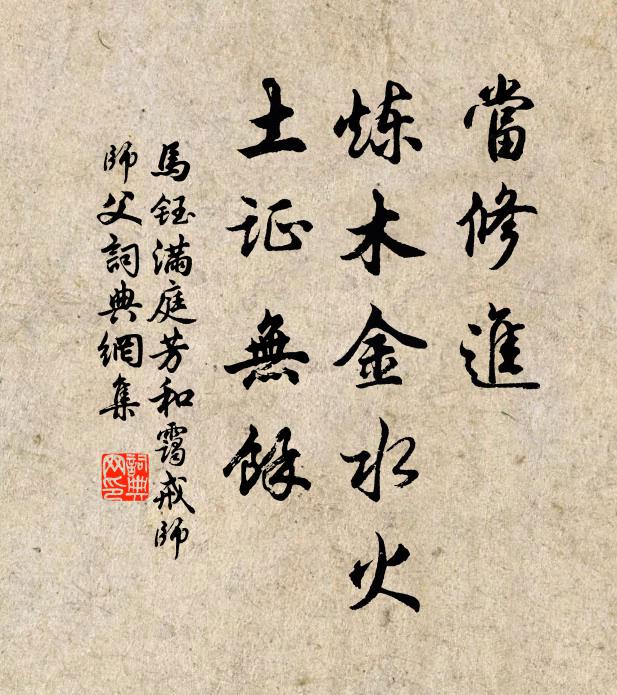 當修進
炼木金水火
土证無餘
馬鈺满庭芳和靄戒師
師父詞典網集
詞典網印